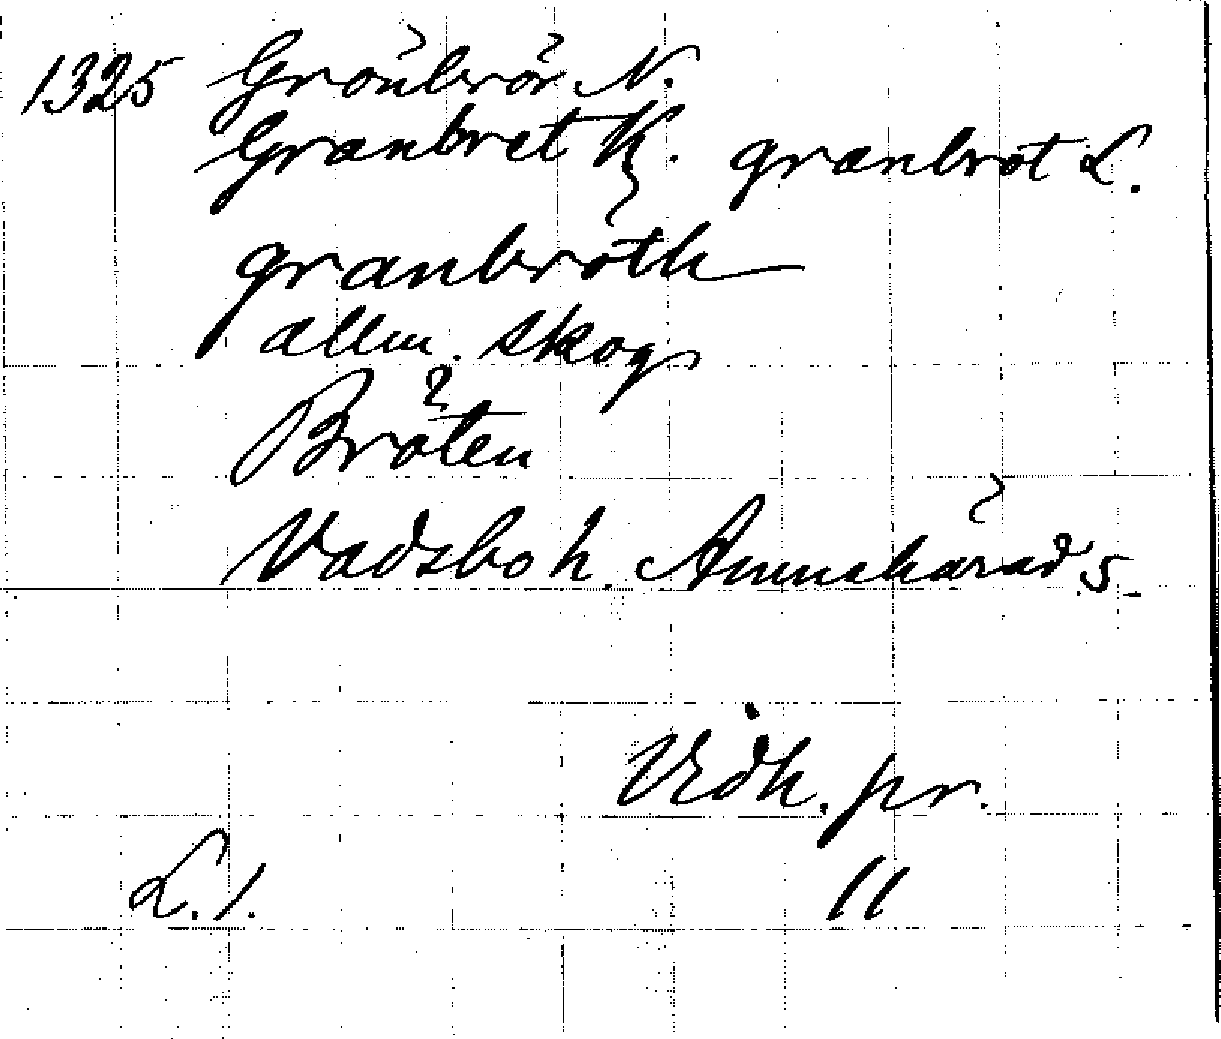 1325 Grönbrör N.
Granbret K. granbrot L.
granbröth
allm. skog
Bröten
Vadsbo h. Amnehärad s.
Vidh. pr.
L. 1. 11